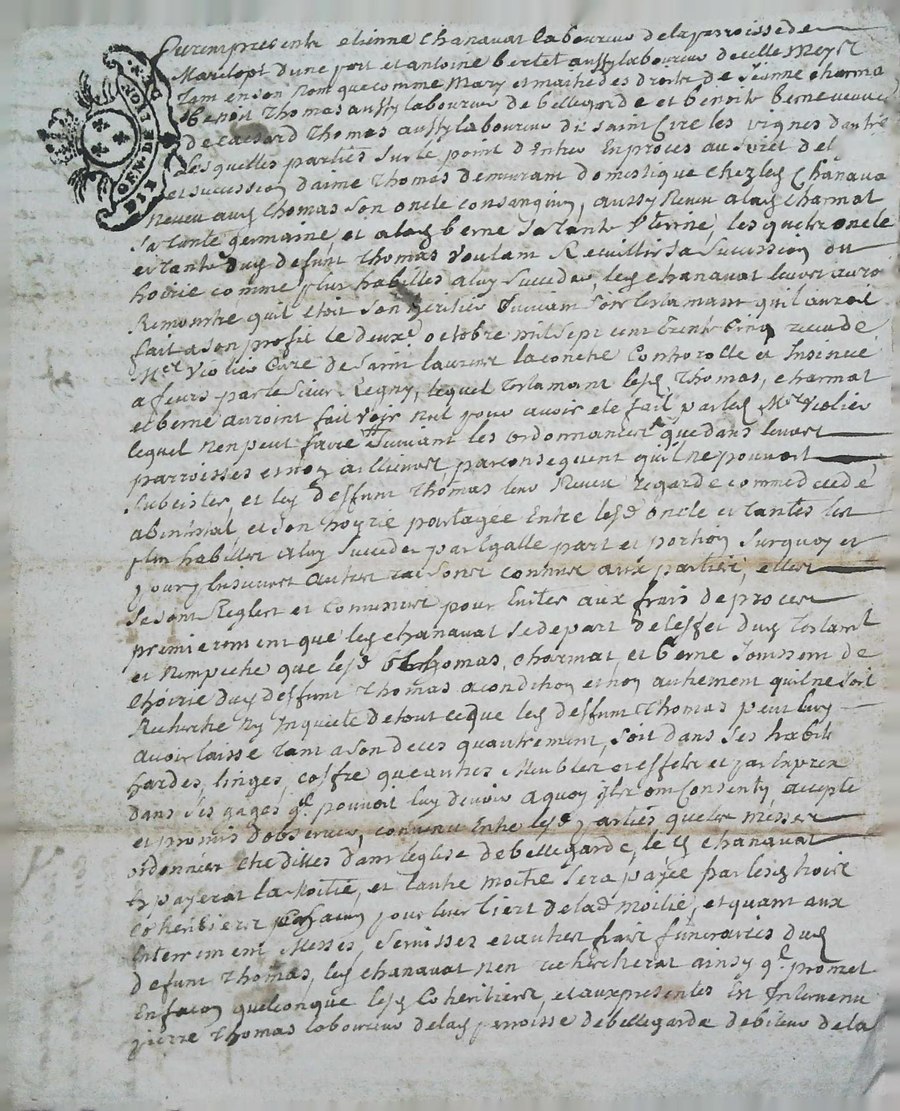 GEN. DE LYON
Furent presents etienne chanavat laboureur de la parroisse de
Marclopt d'une part et antoine bertet aussy laboureur de celle
tam en son nom que comme Mary et maitre des droits de Jeanne charma
benoit Thomas aussy laboureur de bellegarde et benoite berne veuve
de Thomas aussy laboureur de saint Cire les vignes d'autre
Lesquelles parties sur le point d'entrer En proces au sujet de l
et succession d'aimé Thomas demeurant domestique chez led Chanava
Neveu aud Thomas son oncle consanguin, aussy Neveu a lad Charmat
sa tante germaine, et a lad berne sa tante Uterine, lesquels oncle
et tante dud defunt Thomas voulam Recuillir sa sucession ou
hoirie comme plus habilles a luy succeder, led chanavat leur auroi
Remontré qu'il étoit son heritier suivam son testamant qu'il auroit
fait a son profit le deuxe octobre mil sept cent Trente Cinq recu de
Mre Violier Curé de Saint laurent la conche Controllé et Insinué
a feurs par le Sieur Legny, lequel testamant lesd Thomas, charmat
et berne auroint fait voir nul pour avoir eté fait par led Mre Violier
lequel n'en peut faire suivant les ordonnances que dans leurs
parroisses et non ailleurs, par consequent qu'il ne pouvoit
subcister, et led deffunt Thomas leur Neveu regardé comme decedé
abintestat, et son hoyrie partagée Entre lesd oncle et tantes les
plus habilles a luy succeder par Egalle part et portion surquoy et
pour plusieurs autres raisons connues aux parties, elles
se sont Reglées et convenues pour Eviter aux frais de proces
premierement que led chanavat se depart de l'effet dud testamt
et N'empeche que lesd Thomas, charmat, et berne Jouissent de
l'hoirie dud deffunt Thomas a condition et non autrement qu'il ne soit
Recherché Ny Inquieté de tout ce que led deffunt Thomas peut luy
avoir laissé tant a son deces qu'autrement, soit dans ses habits
hardes, linges, coffre que autres Meubles et effets et par Exprex
dans ses gages qe pouvoit luy devoir a quoy consenty accepté
et promis d'observer, convenu Entre lesd parties que les messes
ordonnées etre dittes dans l'eglise de bellegarde, led chanavat
En payera la Moitié, et l'autre moitié sera payée par lesd hoirs
Coheritiers chacun pour leur tiers de lad moitié, et quant aux
Enterrement, Messes, services et autres frais funeraires dud
defunt Thomas, led chanavat n'en recherchera ainsy qe promet
En facon quelconque lesd Coheritiers, et aux presentes Est Intervenu
pierre Thomas laboureur de lad parroisse de bellegarde debiteur de la